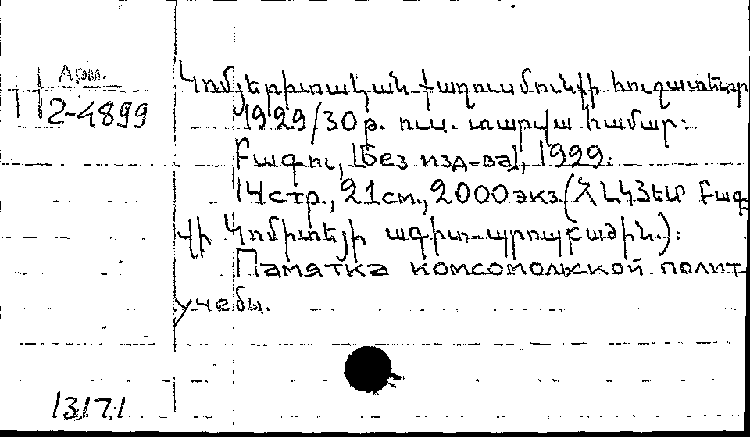 Арм.
2-4899
Կոմյերիտական քաղուսմունքի հուշատետր
1929/30 թ. ուս. տարվա համար:
Բագու, [Без изд-ва], 1929.
14 стр., 21 см., 2000 экз. (ՀԼԿՅԵՄ Բագ
վի Կոմիտեյի ագիտ-պրոպբաժին.):
Памятка комсомольской полит-
учебы.
13171